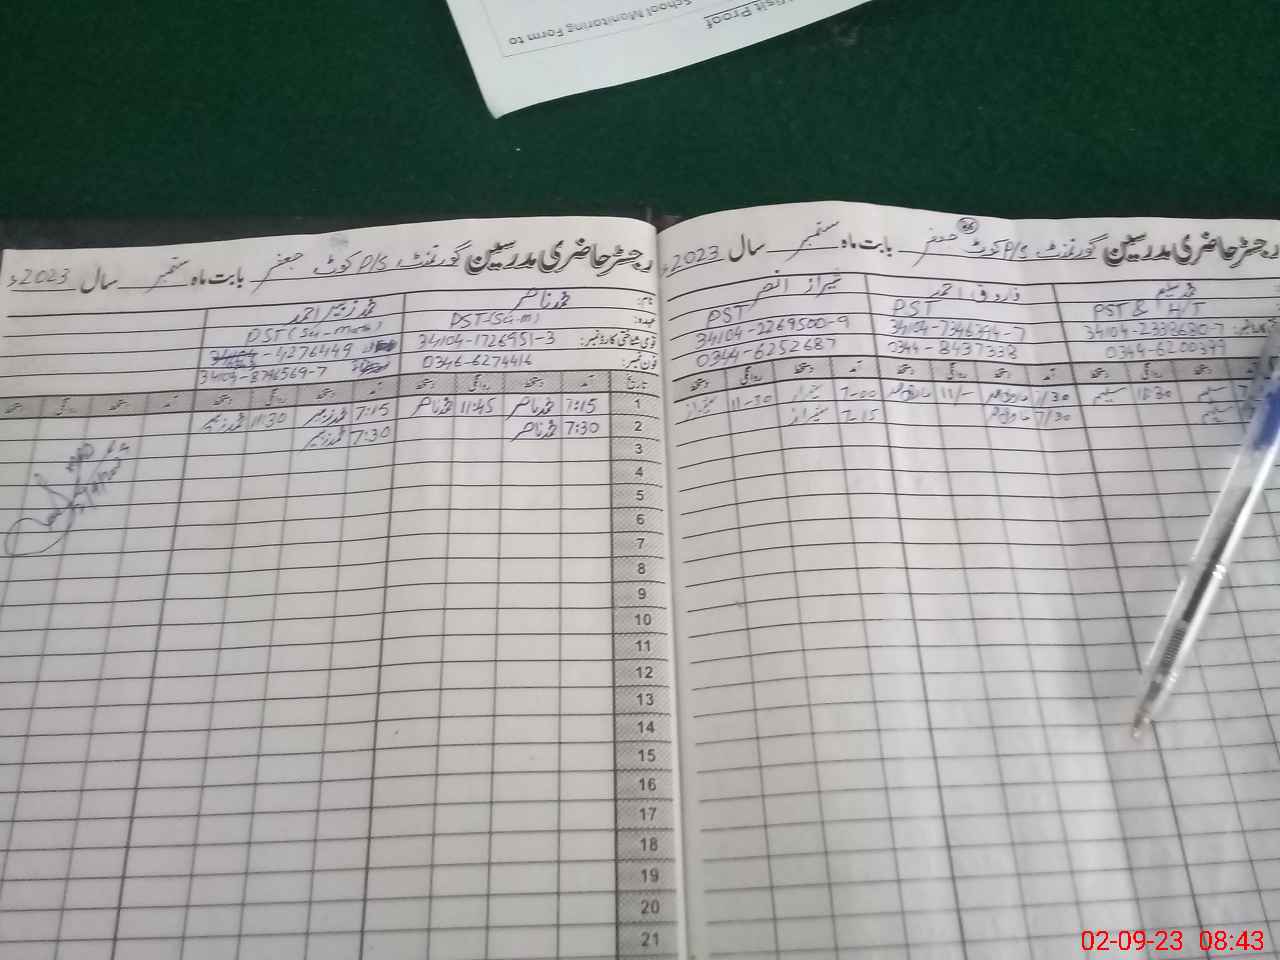 Visit Proof
School Monitoring Form to
رجسٹر حاضری مدرسین گورنمنٹ P/S کوٹ جعفر بابت ماہ ستمبر سال 2023ء
محمد سلیم
فاروق احمد
شیراز انصر
PST & H/T
PST
PST
34104-2269500-9
0344-6252687
0344-8437338
0344-6200379
آمد دستخط روانگی دستخط آمد دستخط روانگی دستخط آمد دستخط روانگی دستخط
سلیم 11:30 سلیم 7/30 11/- 7-00 شیراز 11-30 شیراز
سلیم 7/30 7-15 شیراز
رجسٹر حاضری مدرسین گورنمنٹ P/S کوٹ جعفر بابت ماہ ستمبر سال 2023ء
نام: محمد ناصر محمد زبیر احمد
عہدہ: PST(Sci-m) PST(Sci-Math)
قومی شناختی کارڈ نمبر: 34104-1726951-3
فون نمبر: 0346-6274416 34104-8746569-7
تاریخ آمد دستخط روانگی دستخط آمد دستخط روانگی دستخط آمد دستخط روانگی دستخط
1 7:15 محمد ناصر 11:45 محمد ناصر 7:15 محمد زبیر 11:30 محمد زبیر
2 7:30 محمد ناصر 7:30 محمد زبیر
3
4
5
6
7
8
9
10
11
12
13
14
15
16
17
18
19
20
21
02-09-23 08:43